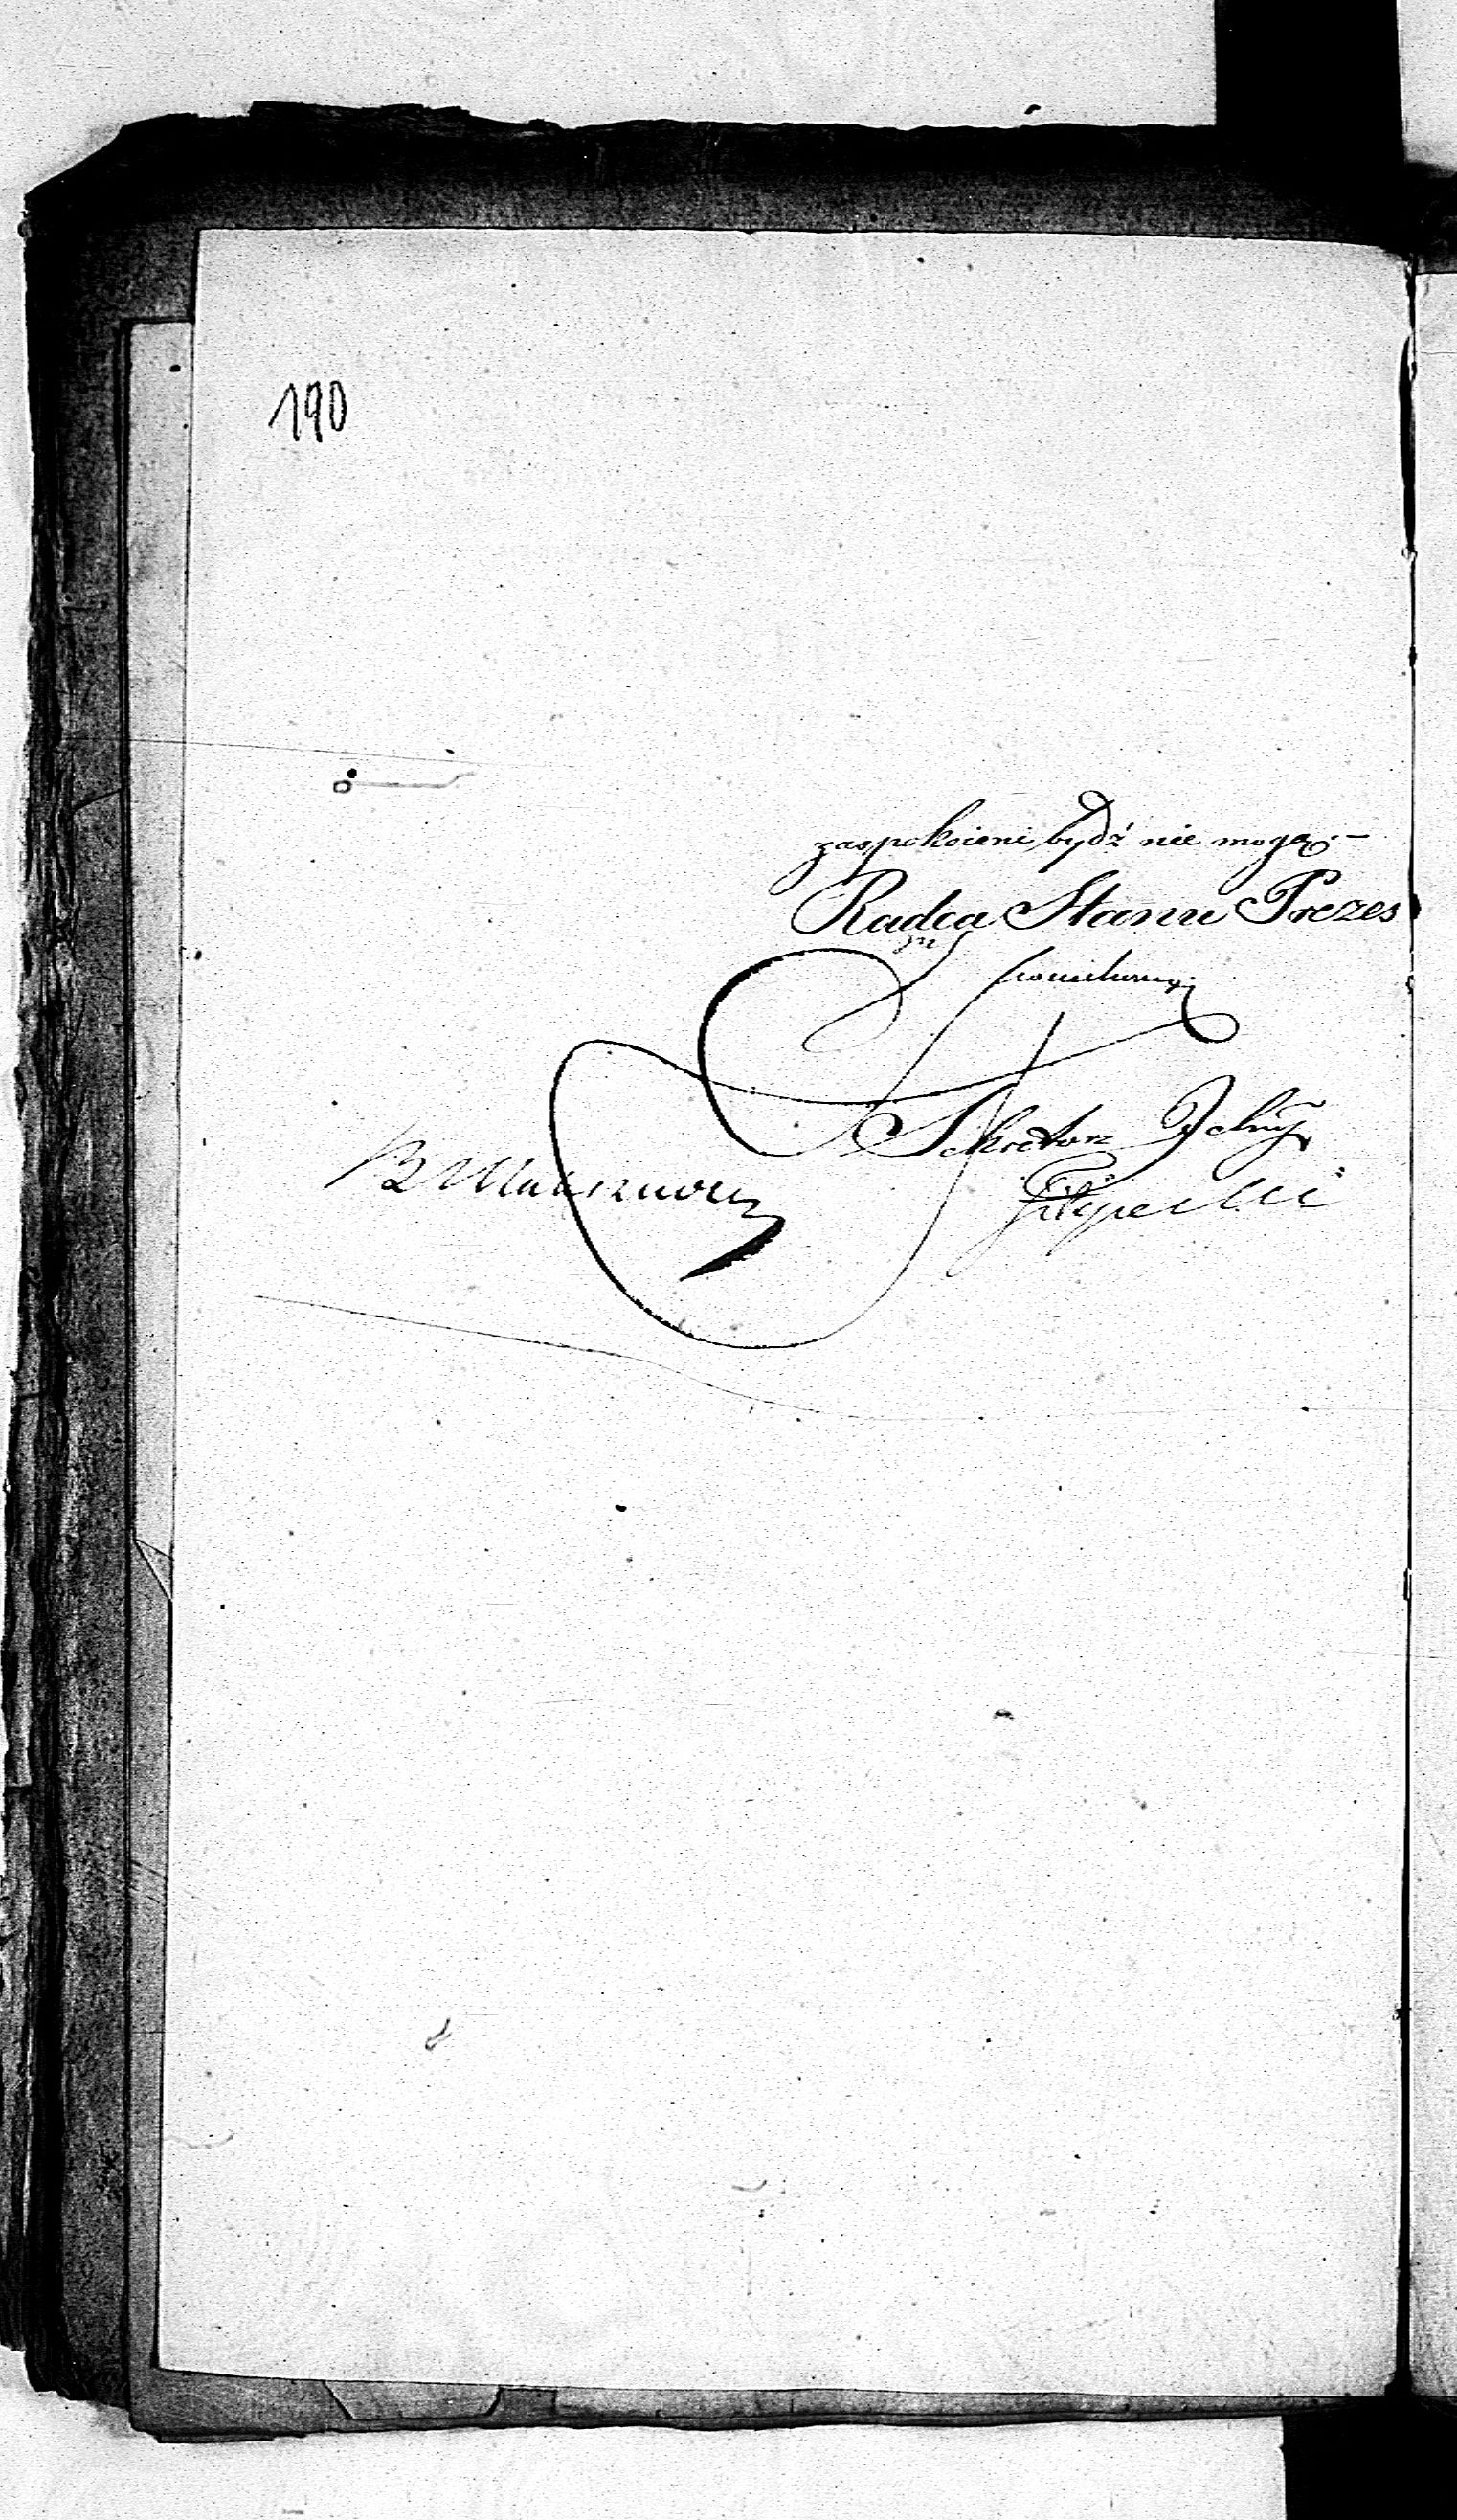 190
zaspokoieni bydź nie mogą. —
Radca Stanu Prezes
Sekretarz Jlny
Filipecki